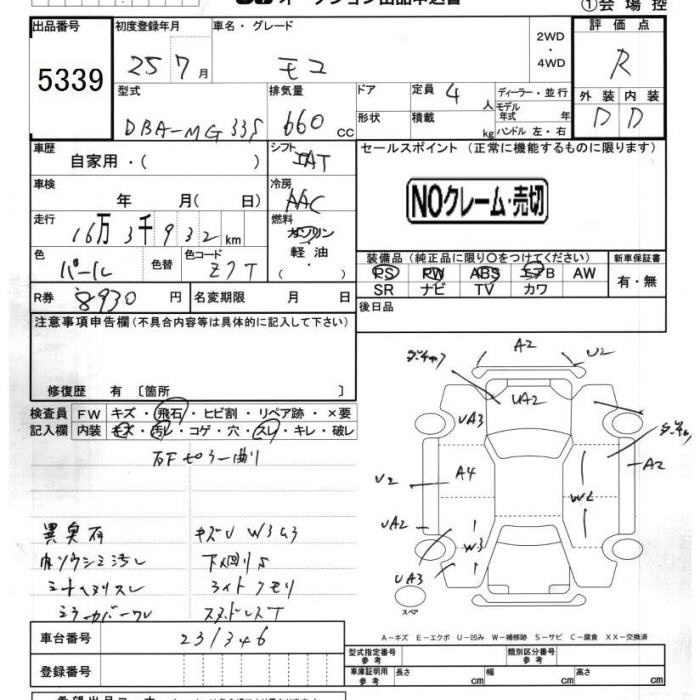 ①会場控
出品番号 初度登録年月 車名・グレード 2WD・4WD 評価点
5339 25 7月 モコ R
型式 排気量 ドア 定員 4人 ディーラー・並行 外装 内装
DBA-MG33S 660 CC 形状 積載 kg モデル年式 年 ハンドル 左・右 D D
車歴 自家用・( ) シフト IAT セールスポイント (正常に機能するものに限ります)
車検 年 月( 日) 冷房 AAC NOクレーム・売切
走行 16万3千932km 燃料 ガソリン 軽油・( )
色 パール 色替 色コード Z7T 装備品(純正品に限り〇をつけてください) 新車保証書
PS PW ABS エアB AW 有・無
SR ナビ TV カワ
R券 8930円 名変期限 月 日 後日品
注意事項申告欄(不具合内容等は具体的に記入して下さい)
修復歴 有 〔箇所 〕
検査員 FW キズ・飛石・ヒビ割・リペア跡・×要
記入欄 内装 キズ・汚レ・コゲ・穴・スレ・キレ・破レ
右Fピラー曲り
異臭有 キズU W3 U3
内ソウシミ汚レ 下回りS
シートヘタリスレ ライトクモリ
ミラーカバーワレ スタッドレスT
A2 U2
UA2
UA3
A4 U2 A2
W2
UA2
W3
UA3
スペア
A-キズ E-エクボ U-凹み W-補修跡 S-サビ C-腐食 XX-交換済
車台番号 231346 型式指定番号 参考 類別区分番号 参考
登録番号 車庫証明用 参考 長さ cm 幅 cm 高さ cm